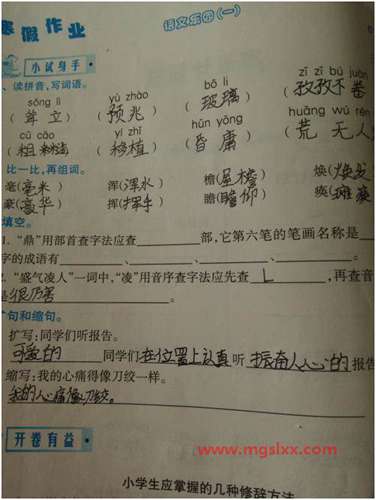 寒假作业 语文乐园(一)
小试身手
读拼音,写词语。
sǒng lì yù zhào bō li zī zī bú juàn
(耸立) (预兆) (玻璃) (孜孜不卷
cū cāo yí zhí hūn yōng huāng wú rén
(粗糙) (移植) (昏庸) (荒无人
比一比,再组词。
毫(毫米) 浑(浑水) 檐(屋檐) 焕(焕发
豪(豪华) 挥(挥手) 瞻(瞻仰) 痪(瘫痪
填空。
1. “鼎”用部首查字法应查 部,它第六笔的笔画名称是
字的成语有 、 、 。
2. “盛气凌人”一词中,“凌”用音序查字法应先查 L ,再查音
是很厉害 。
扩句和缩句。
扩写:同学们听报告。
可爱的 同学们在位置上认真听 振奋人心的报告
缩写:我的心痛得像刀绞一样。
我的心痛像刀绞。
开卷有益
www.mgslxx.com
小学生应掌握的几种修辞方法